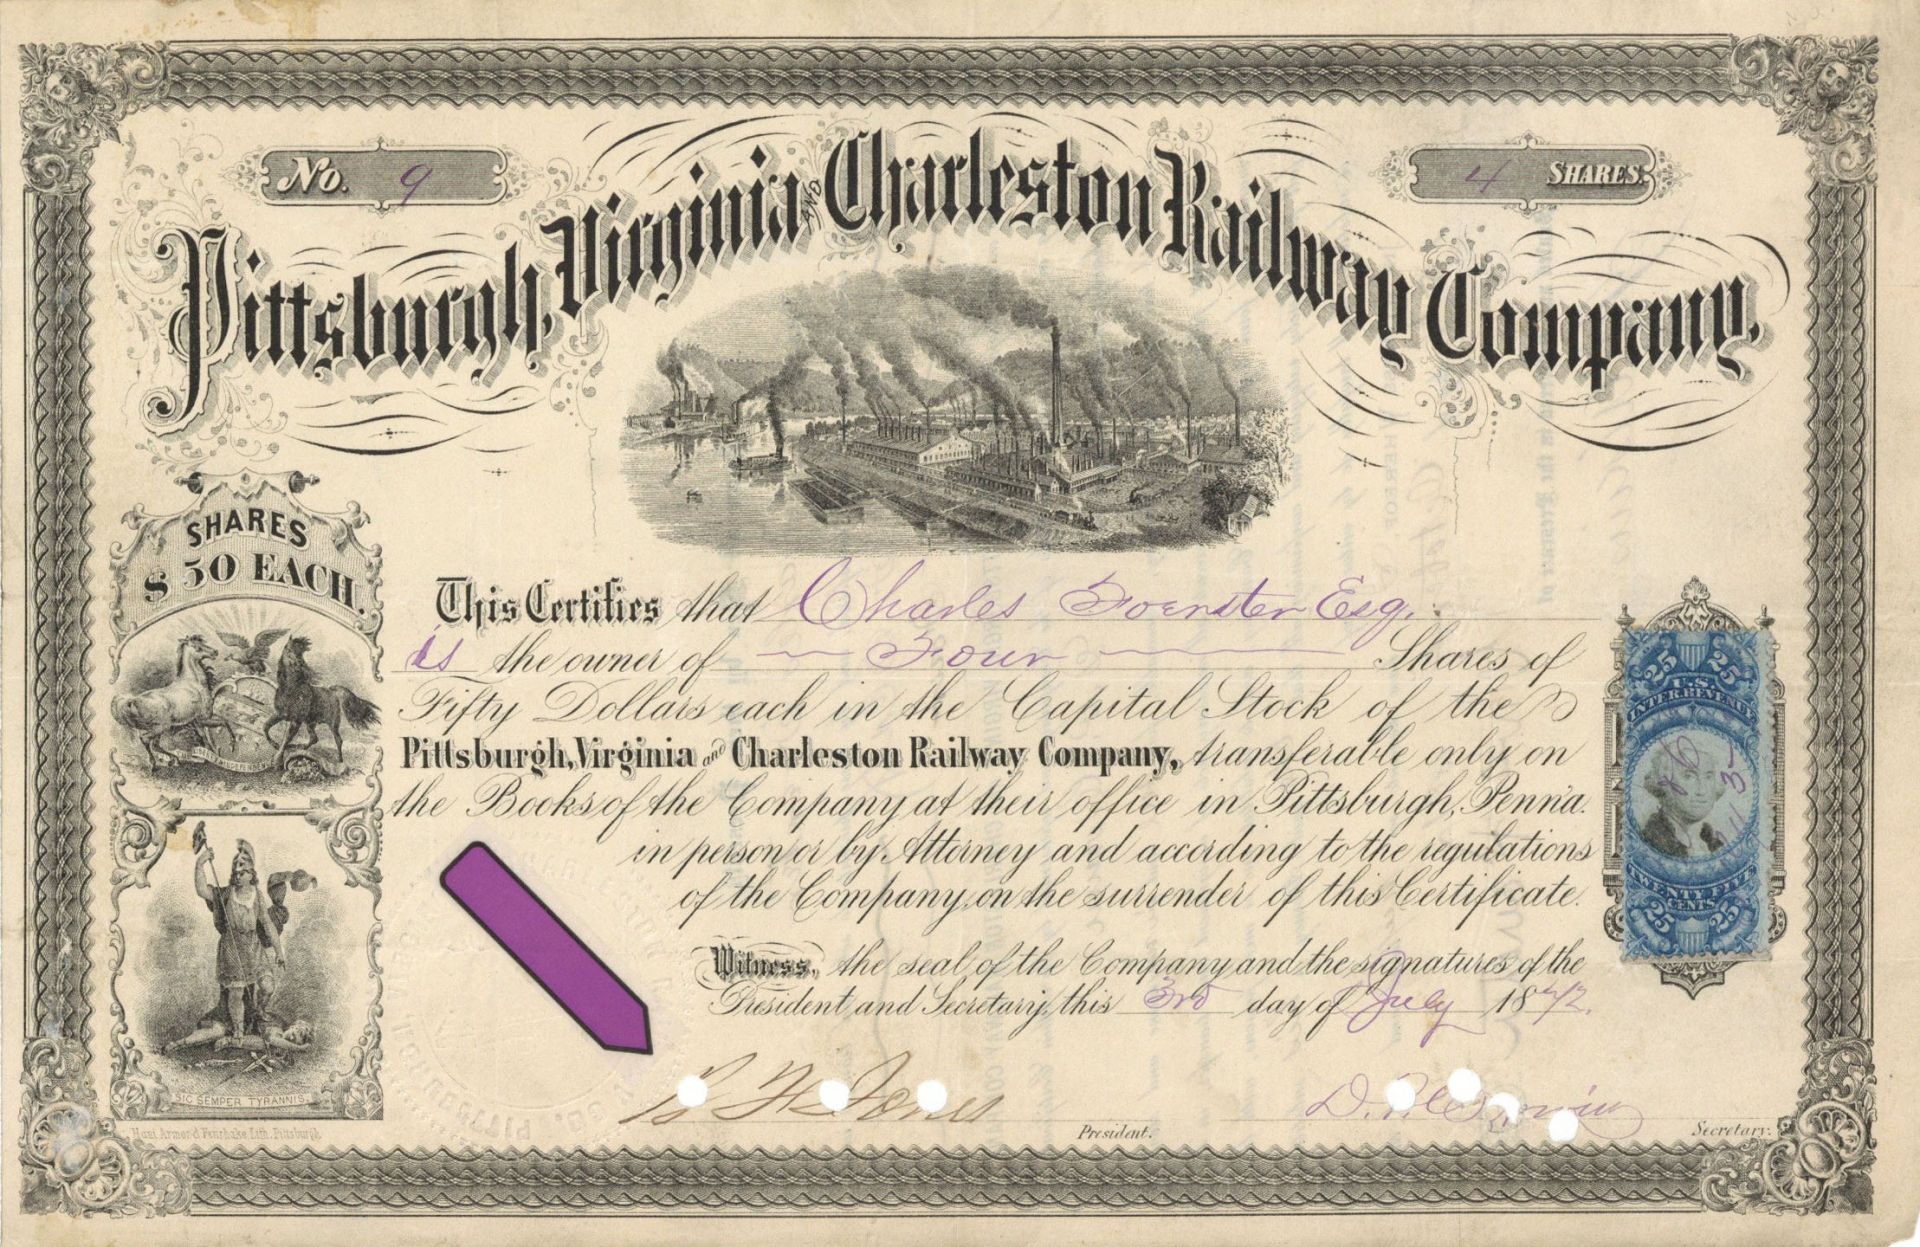 No. 9
4 SHARES.
Pittsburgh, Virginia AND Charleston Railway Company,
SHARES
$50 EACH.
This Certifies that Charles Foerster Esq.
is the owner of Four Shares of
Fifty Dollars each in the Capital Stock of the
Pittsburgh, Virginia and Charleston Railway Company, transferable only on
the Books of the Company at their office in Pittsburgh, Penn'a.
in person or by Attorney and according to the regulations
of the Company, on the surrender of this Certificate.
Witness, the seal of the Company and the signatures of the
President and Secretary, this 3rd day of July 1872.
25 25
U.S.
INTER. REVENUE
TWENTY FIVE
CENTS
25 25
SIC SEMPER TYRANNIS.
B F Jones
President.
Secretary.